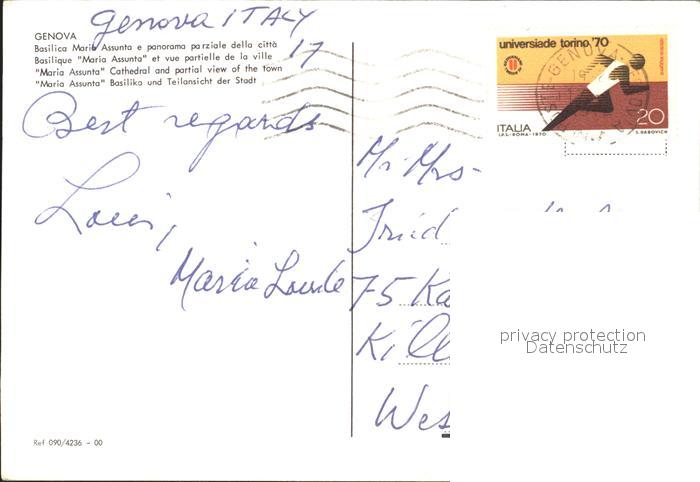 Genova ITALY
17
GENOVA
Basilica Maria Assunta e panorama parziale della città
Basilique "Maria Assunta" et vue partielle de la ville
"Maria Assunta" Cathedral and partial view of the town
"Maria Assunta" Basilika und Teilansicht der Stadt
Best regards
Louis,
Maria Lourde
universiade torino '70
ITALIA
I.P.S.-ROMA-1970
20
S. BABOVICH
GENOVA
Mr Mrs-
75 Ka
Kill
Wes
privacy protection
Datenschutz
Ref 090/4236 - 00